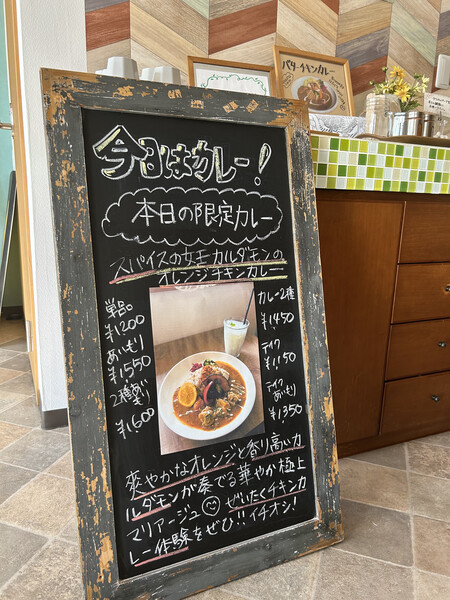 今日はカレー!
本日の限定カレー
スパイスの女王カルダモンの
オレンジチキンカレー
単品
¥1200
あいもり
¥1550
2種あいもり
¥1600
カレー2種
¥1,450
テイク
¥1,150
テイク
あいもり
¥1,350
爽やかなオレンジと香り高いカ
ルダモンが奏でる華やか極上
マリアージュ ぜいたくチキンカ
レー体験をぜひ!!イチオシ!
バターチキンカレー